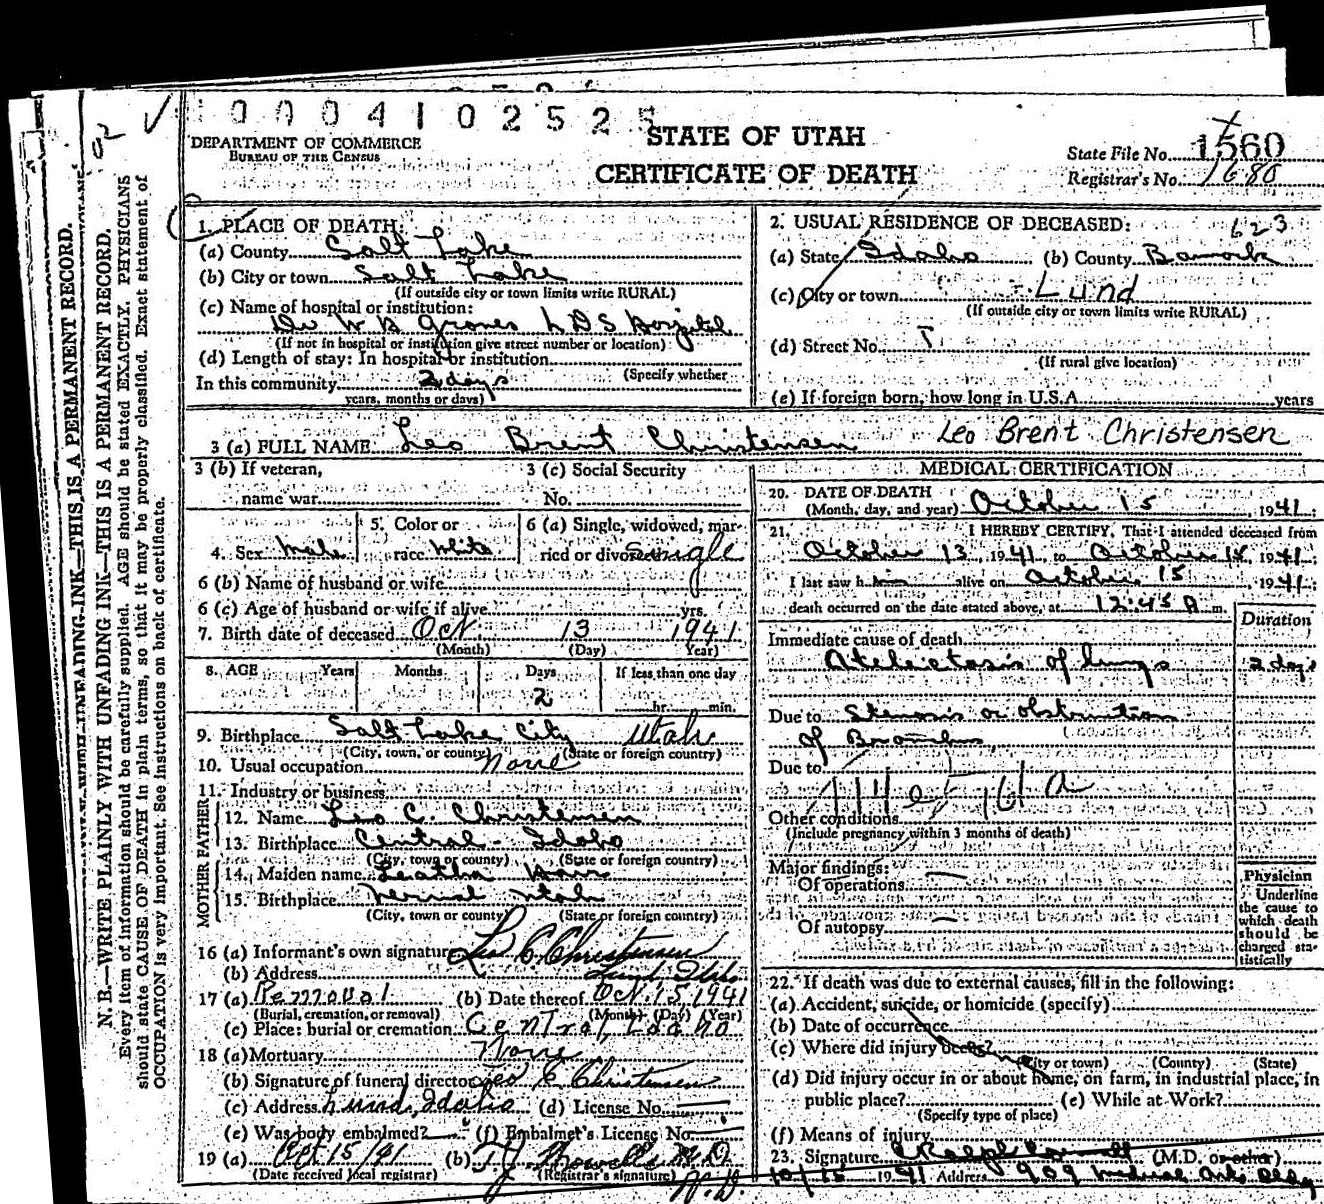 0 0 0 4 1 0 2 5 2 5
DEPARTMENT OF COMMERCE
BUREAU OF THE CENSUS
STATE OF UTAH
CERTIFICATE OF DEATH
State File No. 1560
Registrar's No. 1680
N. B.—WRITE PLAINLY WITH UNFADING INK—THIS IS A PERMANENT RECORD.
Every item of information should be carefully supplied. AGE should be stated EXACTLY. PHYSICIANS
should state CAUSE OF DEATH in plain terms, so that it may be properly classified. Exact statement of
OCCUPATION is very important. See instructions on back of certificate.
1. PLACE OF DEATH:
(a) County Salt Lake
(b) City or town Salt Lake
(If outside city or town limits write RURAL)
(c) Name of hospital or institution:
Dr W H Groves L D S Hospital
(If not in hospital or institution give street number or location)
(d) Length of stay: In hospital or institution
(Specify whether
In this community 2 days
years, months or days)
2. USUAL RESIDENCE OF DECEASED: 623
(a) State Idaho (b) County Bannock
(c) City or town Lund
(If outside city or town limits write RURAL)
(d) Street No.
(If rural give location)
(e) If foreign born, how long in U.S.A. years
3 (a) FULL NAME Leo Brent Christensen Leo Brent Christensen
3 (b) If veteran,
name war
3 (c) Social Security
No.
4. Sex Male
5. Color or
race White
6 (a) Single, widowed, mar-
ried or divorced Single
6 (b) Name of husband or wife
6 (c) Age of husband or wife if alive yrs.
7. Birth date of deceased Oct. 13 1941
(Month) (Day) (Year)
8. AGE Years Months Days If less than one day
2 hr. min.
9. Birthplace Salt Lake City Utah
(City, town, or county) (State or foreign country)
10. Usual occupation None
11. Industry or business
FATHER
12. Name Leo C. Christensen
13. Birthplace Central - Idaho
(City, town or county) (State or foreign country)
MOTHER
14. Maiden name Leatha
15. Birthplace Vernal Utah
(City, town or county) (State or foreign country)
16 (a) Informant's own signature Leo C. Christensen
(b) Address Lund, Idaho
17 (a) Removal (b) Date thereof Oct. 15, 1941
(Burial, cremation, or removal) (Month) (Day) (Year)
(c) Place: burial or cremation Central, Idaho
18 (a) Mortuary None
(b) Signature of funeral director Leo C Christensen
(c) Address Lund, Idaho (d) License No.
(e) Was body embalmed? (f) Embalmer's License No.
19 (a) Oct 15/41 (b) T J Howells M.D.
(Date received local registrar) (Registrar's signature)
MEDICAL CERTIFICATION
20. DATE OF DEATH
(Month, day, and year) October 15 1941
21. I HEREBY CERTIFY, That I attended deceased from
October 13, 1941 to October 15, 1941.
I last saw him alive on October 15 1941.
death occurred on the date stated above, at 12:45 A m.
Duration
Immediate cause of death
Atelectasis of lungs 2 days
Due to Stenosis or obstruction
of Bronchus
Due to
Other conditions
(Include pregnancy within 3 months of death)
Major findings:
Of operations —
Of autopsy —
Physician
Underline
the cause to
which death
should be
charged sta-
tistically
22. If death was due to external causes, fill in the following:
(a) Accident, suicide, or homicide (specify)
(b) Date of occurrence
(c) Where did injury occur?
(City or town) (County) (State)
(d) Did injury occur in or about home, on farm, in industrial place, in
public place? (e) While at Work?
(Specify type of place)
(f) Means of injury
23. Signature (M.D. or other)
10/15 1941 Address 909 Medical Arts Bldg